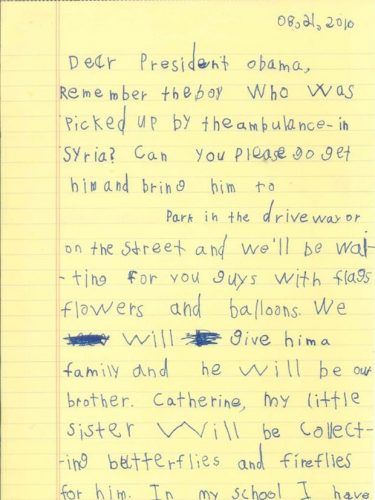 08,21,2010
Dear President obama,
Remember the boy Who was
Picked up by the ambulance - in
Syria? Can you Please go get
him and bring him to
Park in the driveway or
on the street and we'll be wai-
- ting for you guys with flags
flowers and balloons. We
will give him a
family and he will be our
brother. Catherine, my little
sister will be collect-
- ing butterflies and fireflies
for him. In my school I have